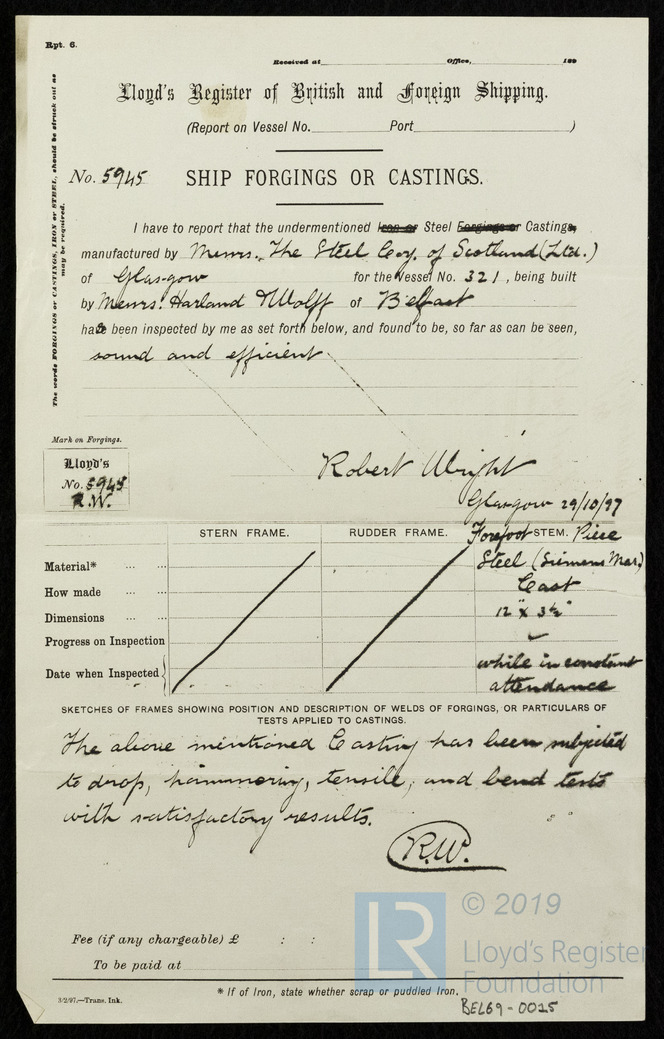 Rpt. 6.
Received at Office, 189
Lloyd's Register of British and Foreign Shipping.
(Report on Vessel No. Port )
No. 5945 SHIP FORGINGS OR CASTINGS.
The words FORGINGS or CASTINGS, IRON or STEEL, should be struck out as
may be required.
I have to report that the undermentioned Iron or Steel Forgings or Casting
manufactured by Messrs. The Steel Coy. of Scotland (Ltd.)
of Glasgow for the Vessel No. 321, being built
by Messrs. Harland & Wolff of Belfast
has been inspected by me as set forth below, and found to be, so far as can be seen,
sound and efficient
Mark on Forgings.
Lloyd's
No. 5945
R.W.
Robert Wright
Glasgow 29/10/97
STERN FRAME. RUDDER FRAME. Forefoot STEM. Piece
Material* Steel (Siemens Mar.)
How made Cast
Dimensions 12" x 3½"
Progress on Inspection
Date when Inspected while in constant
attendance
SKETCHES OF FRAMES SHOWING POSITION AND DESCRIPTION OF WELDS OF FORGINGS, OR PARTICULARS OF
TESTS APPLIED TO CASTINGS.
The above mentioned Casting has been subjected
to drop, hammering, tensile, and bend tests
with satisfactory results.
R.W.
Fee (if any chargeable) £ : :
To be paid at
* If of Iron, state whether scrap or puddled Iron.
3/2/97.—Trans. Ink.
BEL69-0025
LR
© 2019
Lloyd's Register
Foundation